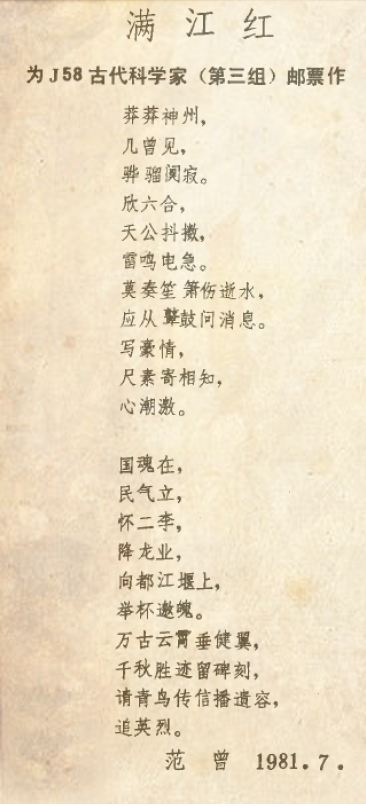 满江红
为J58古代科学家（第三组）邮票作
莽莽神州，
几曾见，
骅骝阒寂。
欣六合，
天公抖擞，
雷鸣电急。
莫奏笙箫伤逝水，
应从鼙鼓问消息。
写豪情，
尺素寄相知，
心潮激。
国魂在，
民气立，
怀二李，
降龙业，
向都江堰上，
举杯邀魄。
万古云霄垂健翼，
千秋胜迹留碑刻，
请青鸟传信播遗容，
追英烈。
范曾 1981.7.